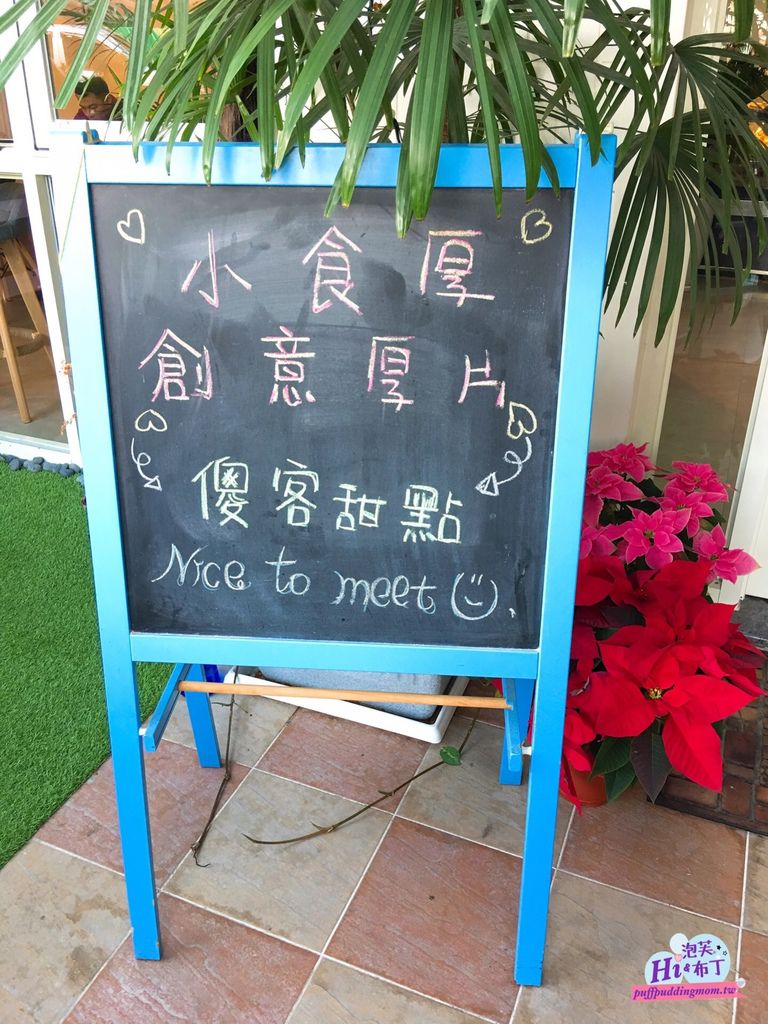 小食厚
創意厚片
傻客甜點
Nice to meet
泡芙
Hi&布丁
puffpuddingmom.tw